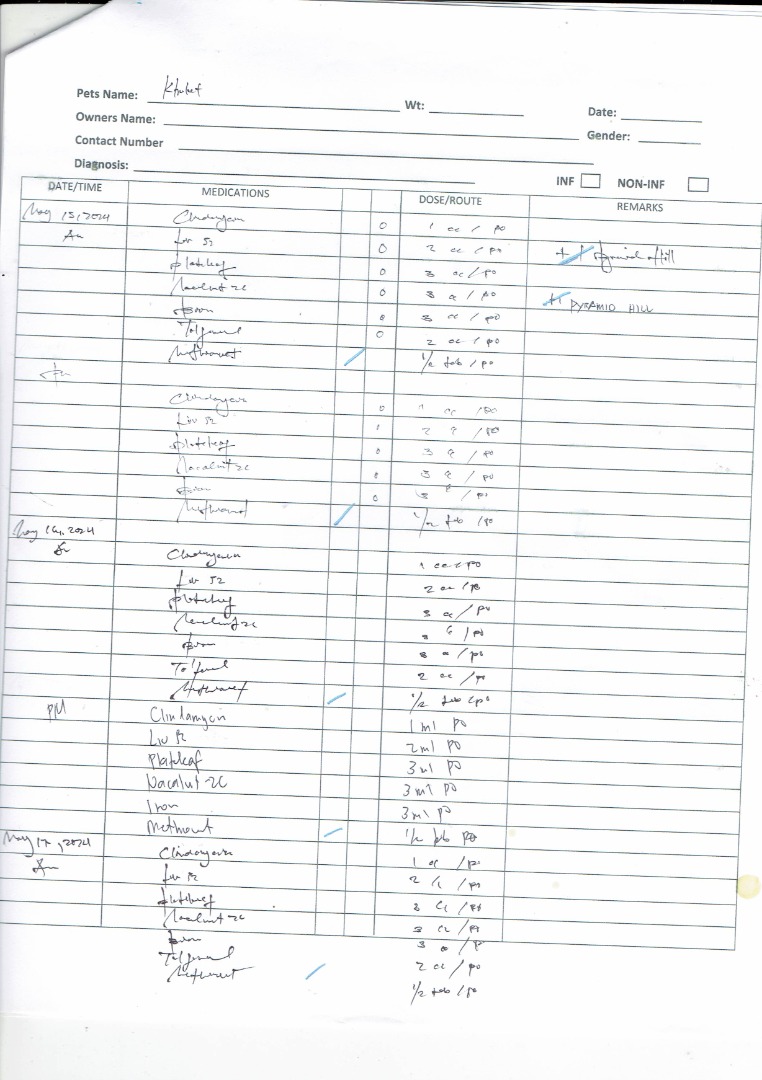 Pets Name: Khukef Wt:
Date:
Owners Name:
Gender:
Contact Number
Diagnosis:
INF NON-INF
DATE/TIME MEDICATIONS DOSE/ROUTE REMARKS
May 15, 2024 Clindamycin 0 1 cc / po
Am Liv 52 0 2 cc / po
plateleaf 0 3 cc / po
Nacalvit 2C 0 3 cc / po PYRAMID HILL
Iron 0 3 cc / po
0 2 cc / po
1/2 tab / po
Pm
Clindamycin 0 1 cc / po
Liv 52 2 / po
plateleaf 0 3 / po
Nacalvit 2C 0 3 / po
Iron 0 3 / po
1/2 tab / po
May 16, 2024
Am Clindamycin 1 cc / po
Liv 52 2 cc / po
plateleaf 3 cc / po
Nacalvit 2C 3 / po
Iron 3 cc / po
2 cc / po
1/2 tab / po
PM Clindamycin 1 ml po
Liv 52 2 ml po
Plateleaf 3 ml po
Nacalvit 2C 3 ml po
Iron 3 ml po
1/2 tab po
May 17, 2024 Clindamycin 1 cc / po
Am Liv 52 2 cc / po
plateleaf 3 cc / po
Nacalvit 2C 3 cc / po
Iron 3 cc / po
2 cc / po
1/2 tab / po